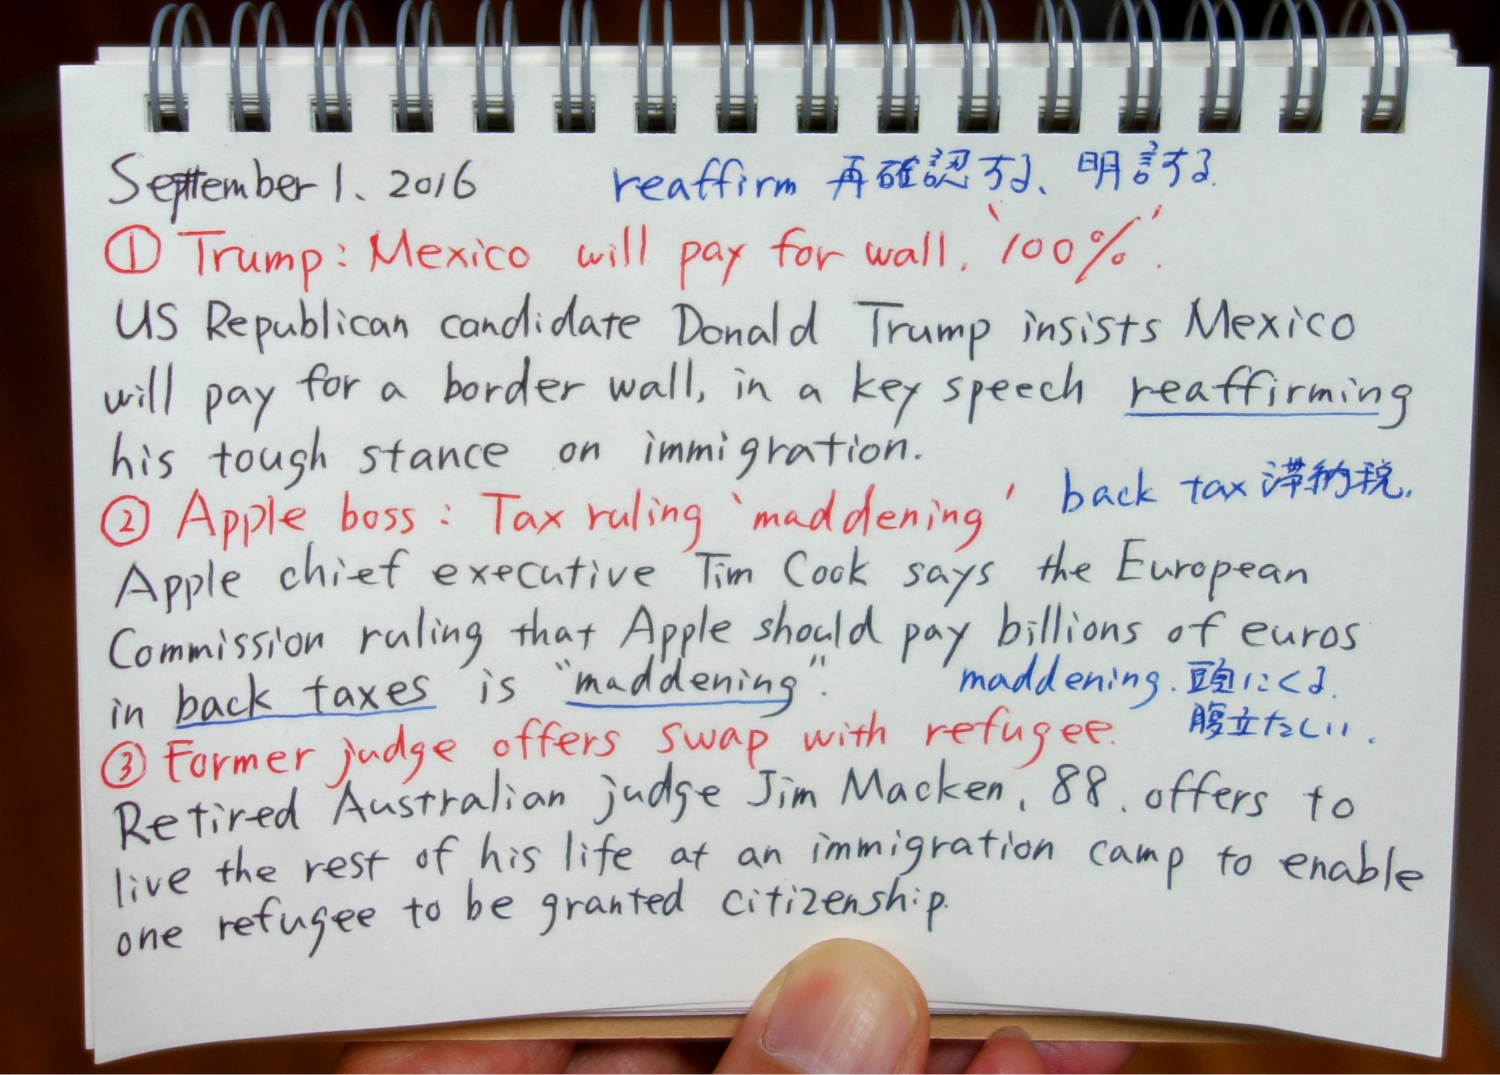 September 1、2016 reaffirm 再確認する、明言する.
① Trump: Mexico will pay for wall, '100%'.
US Republican candidate Donald Trump insists Mexico
will pay for a border wall, in a key speech reaffirming
his tough stance on immigration.
back tax 滞納税.
② Apple boss: Tax ruling 'maddening'
Apple chief executive Tim Cook says the European
Commission ruling that Apple should pay billions of euros
in back taxes is "maddening".
maddening. 頭にくる.
腹立たしい.
③ Former judge offers swap with refugee.
Retired Australian judge Jim Macken, 88, offers to
live the rest of his life at an immigration camp to enable
one refugee to be granted citizenship.